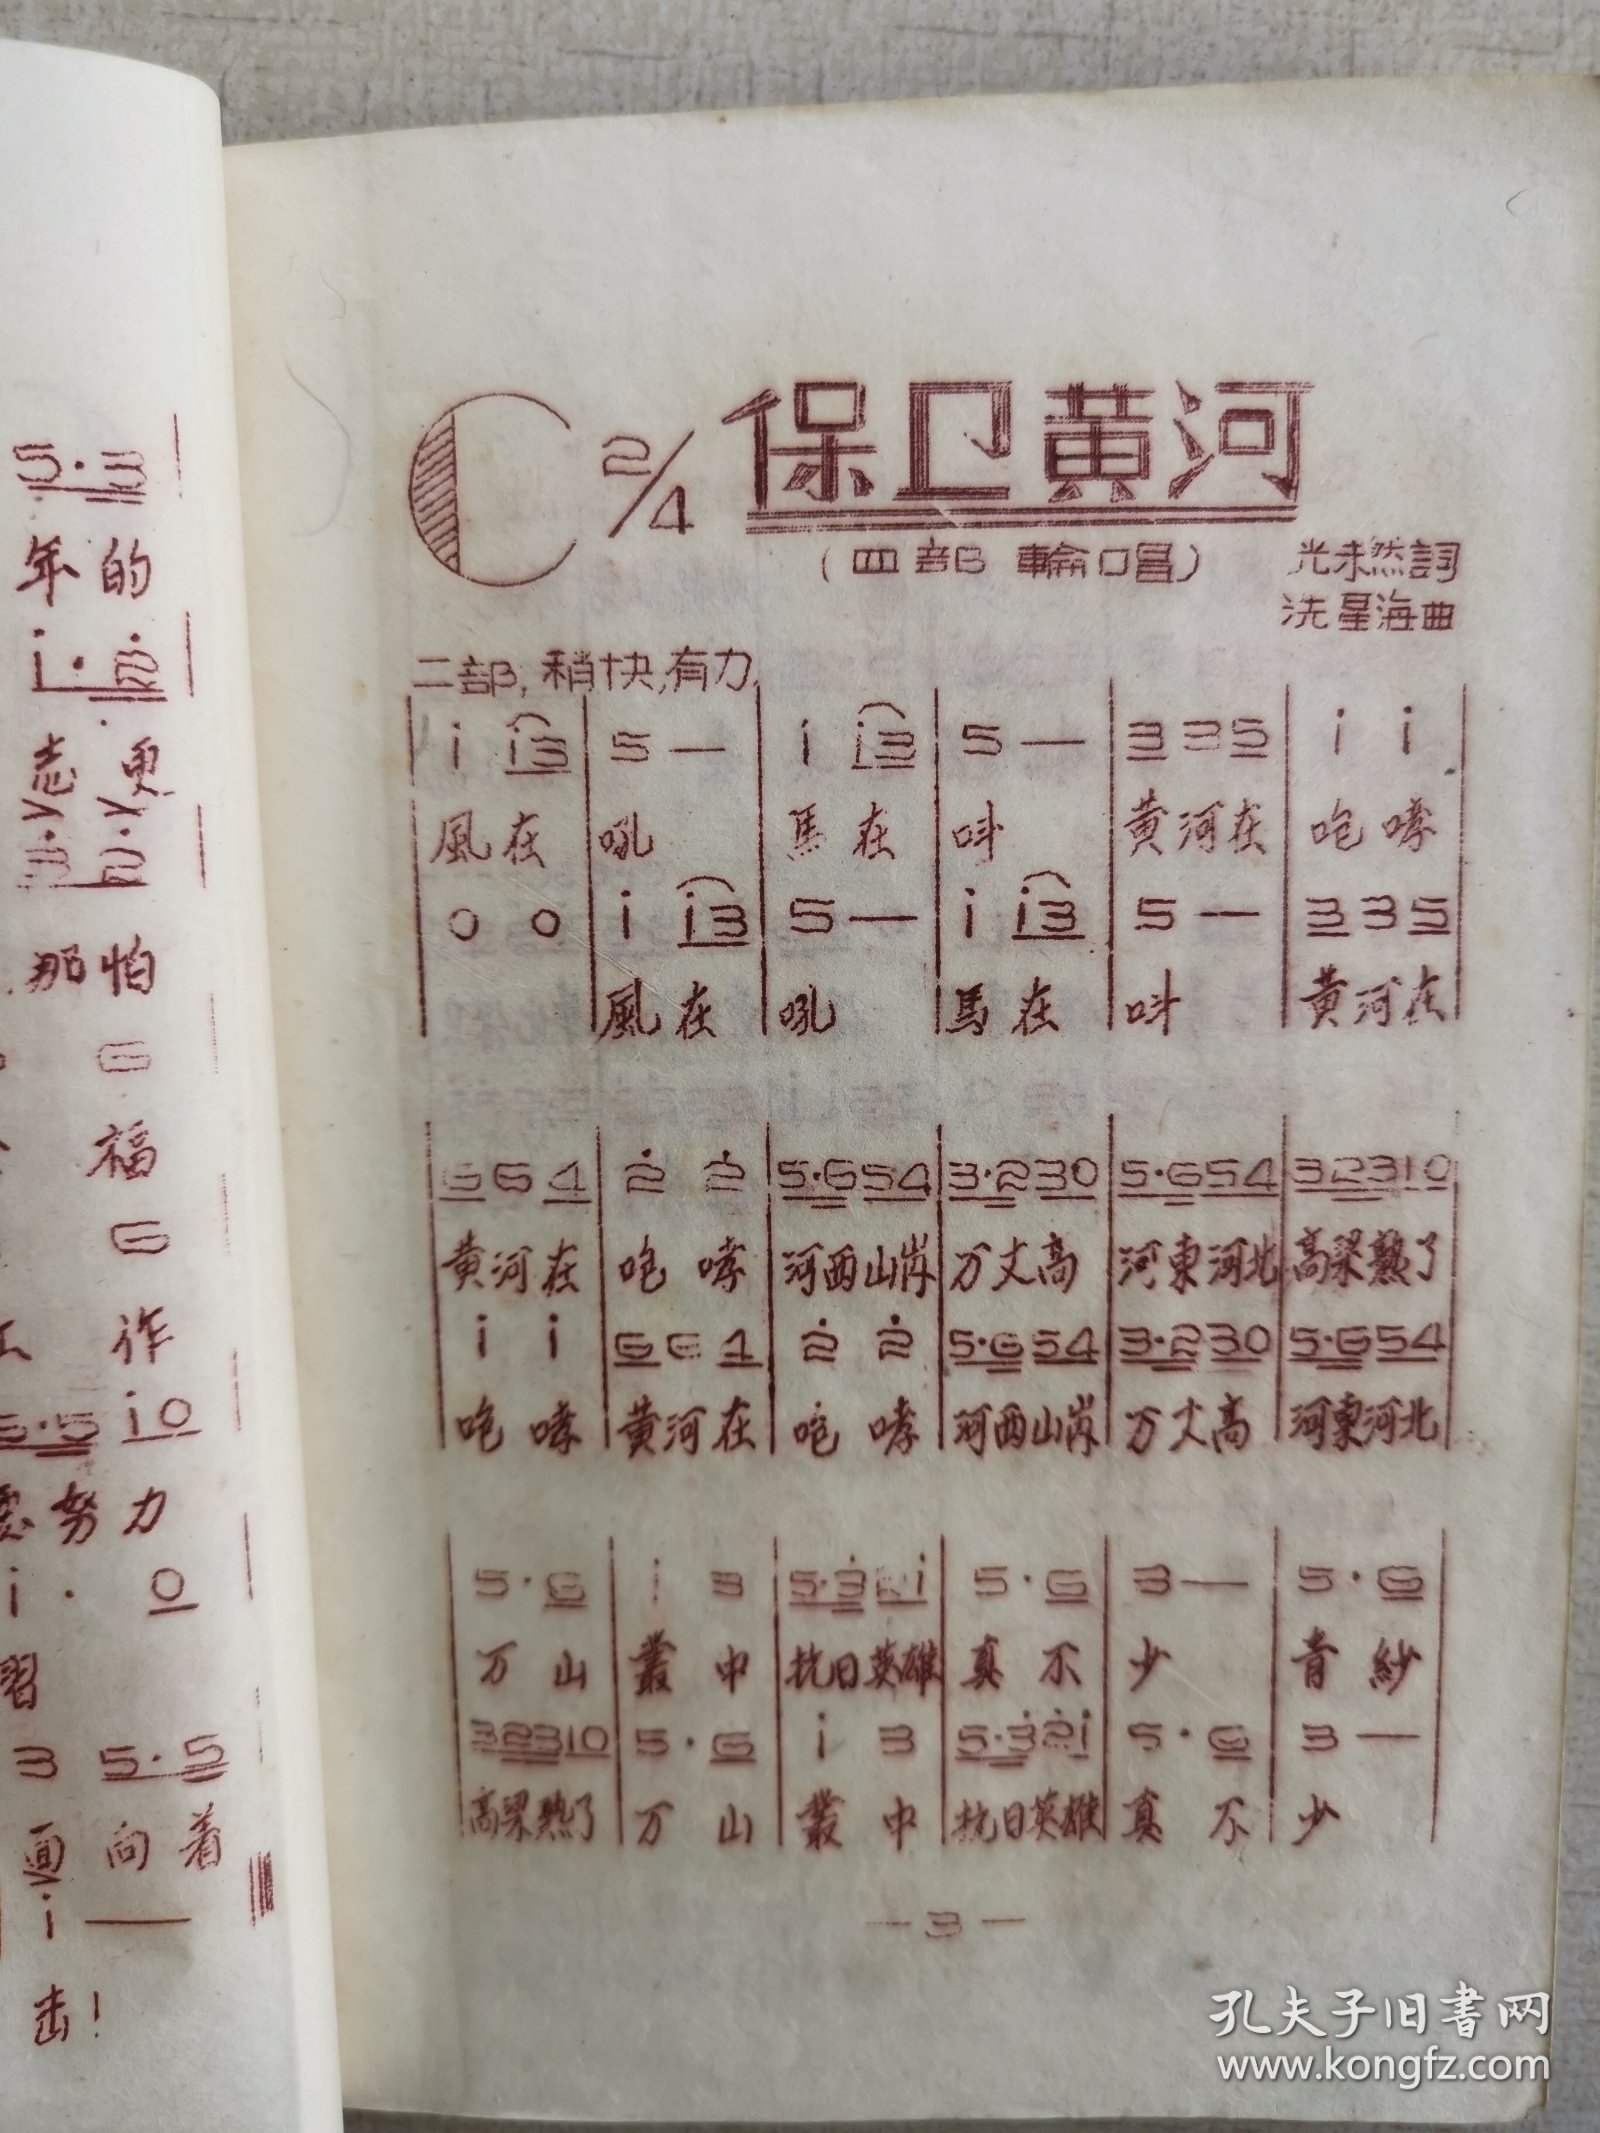 5·3
年的
i·2
志更
3·2
那怕
6
福
6
作
5·5 i0
努力
i· 0
習
3 5·5
面向着
i —
击!
C 2/4 保卫黄河
(四部輪唱) 光未然詞
洗星海曲
二部,稍快,有力,
i i3 | 5 — | i i3 | 5 — | 3 3 5 | i i
風在 吼 馬在 叫 黄河在 咆哮
0 0 | i i3 | 5 — | i i3 | 5 — | 3 3 5
風在 吼 馬在 叫 黄河在
6 6 4 | 2 2 | 5·6 5 4 | 3·2 3 0 | 5·6 5 4 | 3 2 3 1 0
黄河在 咆哮 河西山岗 万丈高 河東河北 高梁熟了
i i | 6 6 4 | 2 2 | 5·6 5 4 | 3·2 3 0 | 5·6 5 4
咆哮 黄河在 咆哮 河西山岗 万丈高 河東河北
5·6 | i 3 | 5·3 2 i | 5·6 | 3 — | 5·6
万山 叢中 抗日英雄 真不 少 青紗
3 2 3 1 0 | 5·6 | i 3 | 5·3 2 i | 5·6 | 3 —
高梁熟了 万山 叢中 抗日英雄 真不 少
— 3 —
孔夫子旧書网
www.kongfz.com